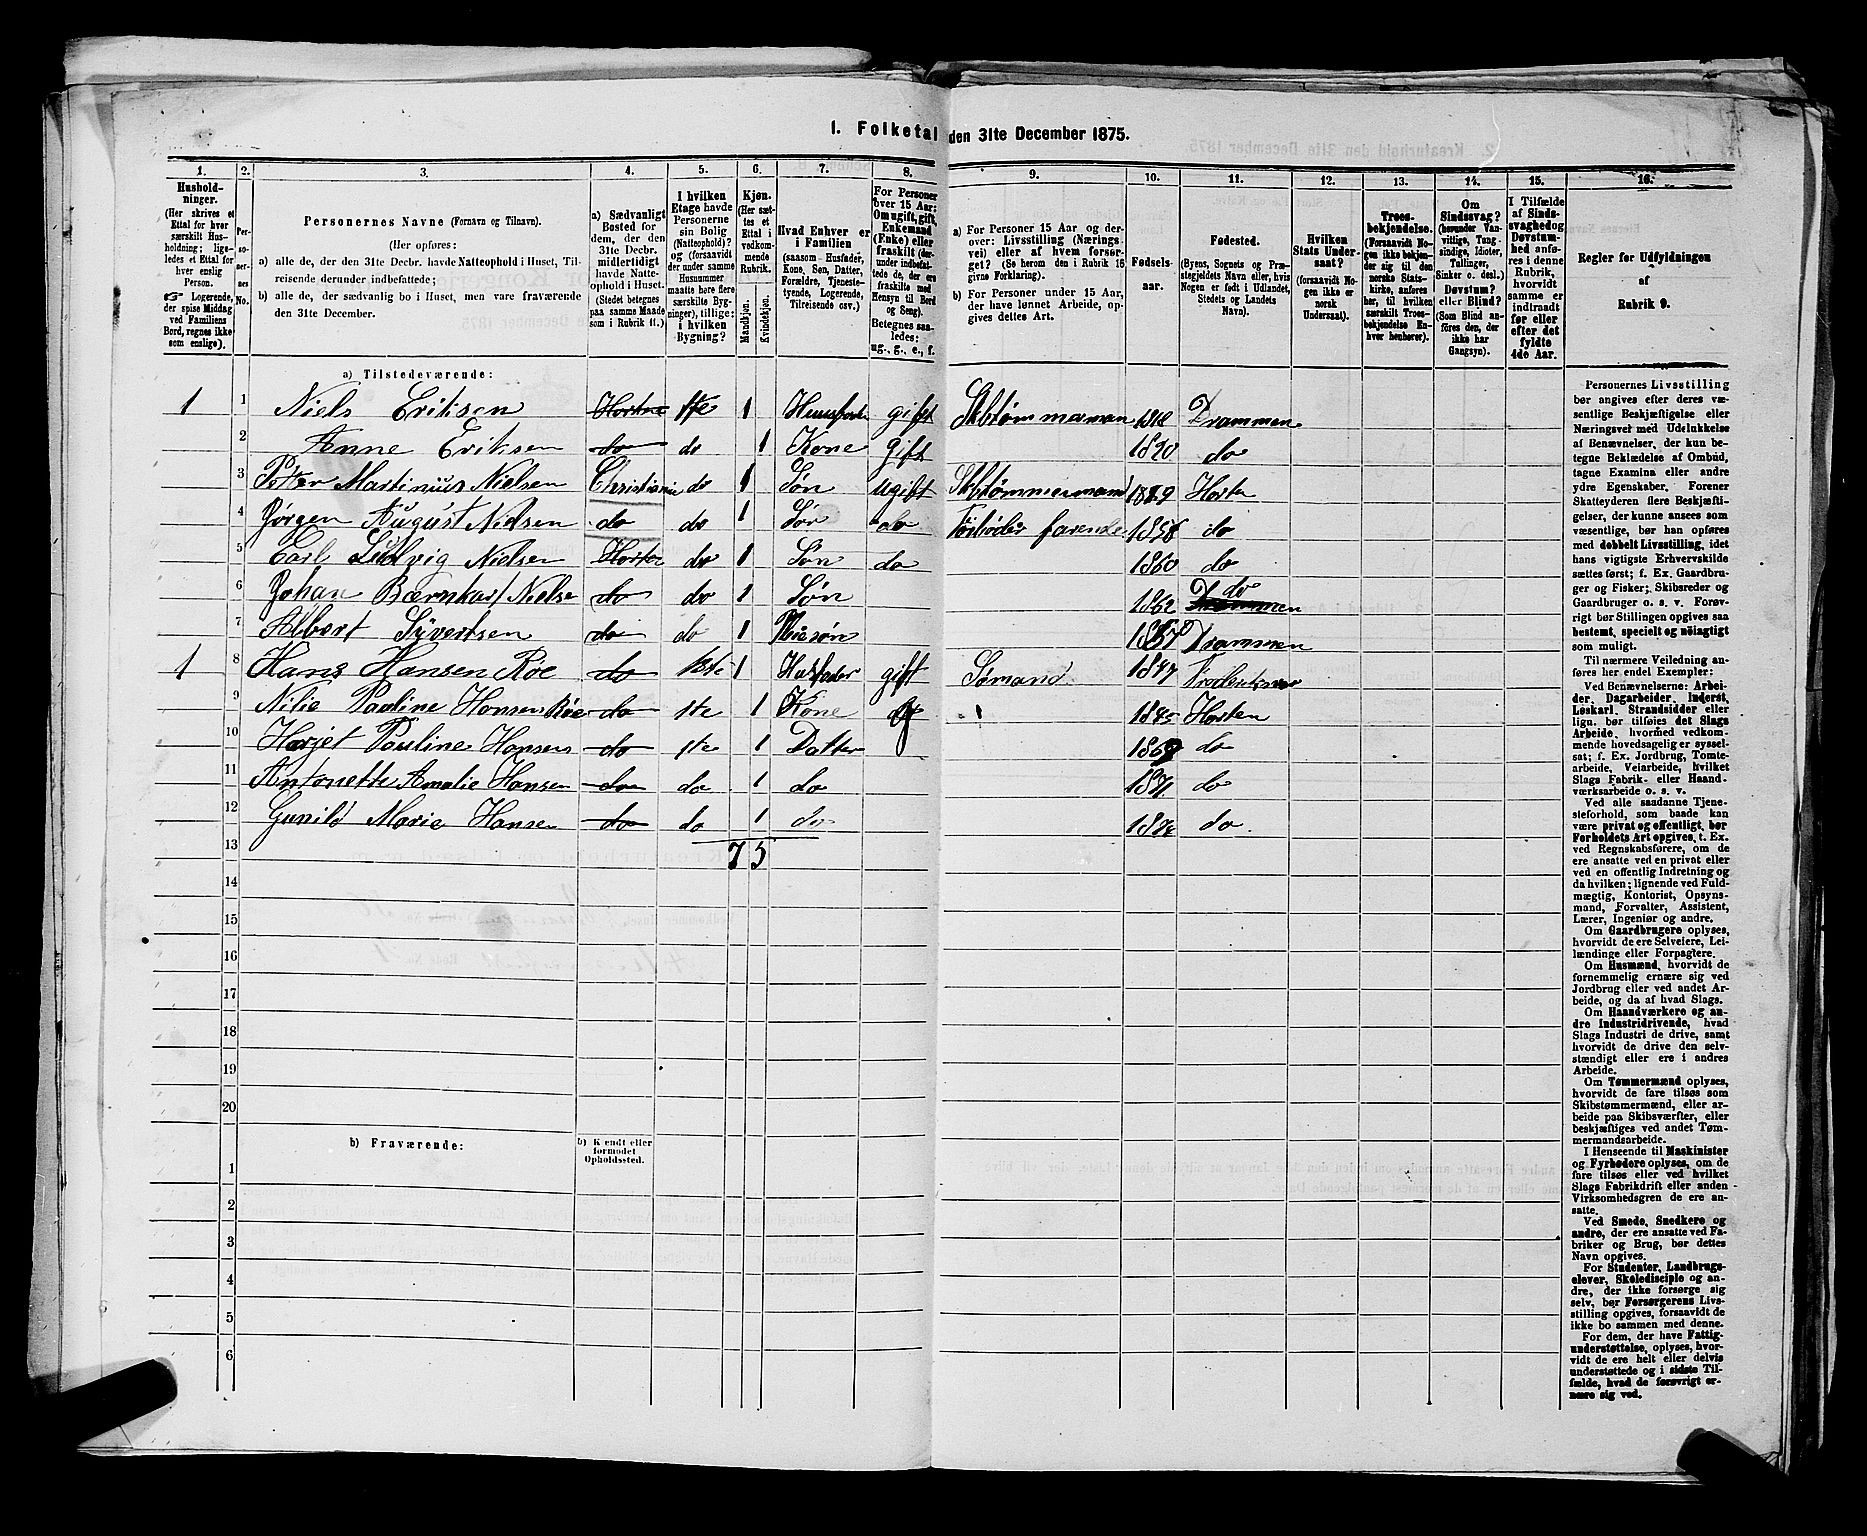 1. Folketal den 31te December 1875.
1. 2. 3. 4. 5. 6. 7. 8. 9. 10. 11. 12. 13. 14. 15. 16.
Hushold-
ninger.
(Her skrives et
Ettal for hver
særskilt Hus-
holdning; lige-
ledes et Ettal for
hver enslig
Person.
☞ Logerende,
der spise Middag
ved Familiens
Bord, regnes ikke
som enslige).
Per-
so-
ner-
nes
No.
Personernes Navne (Fornavn og Tilnavn).
(Her opføres:
a) alle de, der den 31te Decbr. havde Natteophold i Huset, Til-
reisende derunder indbefattede;
b) alle de, der sædvanlig bo i Huset, men vare fraværende
den 31te December.
a) Sædvanligt
Bosted for
dem, der den
31te Decbr.
midlertidigt
havde Natte-
ophold i Huset.
(Stedet betegnes
paa samme Maade
som i Rubrik 11.)
I hvilken
Etage havde
Personerne
sin Bolig
(Natteophold)?
og (forsaavidt
der under samme
Husnummer
maatte høre flere
særskilte Byg-
ninger), tillige:
i hvilken
Bygning?
Kjøn.
(Her sæt-
tes et
Ettal i
vedkom-
mende
Rubrik.
Mandkjøn.
Kvindekjøn.
Hvad Enhver er
i Familien
(saasom Husfader,
Kone, Søn, Datter,
Forældre, Tjeneste-
tyende, Logerende,
Tilreisende osv.)
For Personer
over 15 Aar:
Om ugift, gift,
Enkemand
(Enke) eller
fraskilt (der-
under indbefat-
tede de, der ere
fraskilte med
Hensyn til Bord
og Seng).
Betegnes saa-
ledes:
ug., g., e., f.
a) For Personer 15 Aar og der-
over: Livsstilling (Nærings-
vei) eller af hvem forsør-
get? (Se herom den i Rubrik 16
givne Forklaring).
b) For Personer under 15 Aar,
der have lønnet Arbeide, op-
gives dettes Art.
Fødsels-
aar.
Fødested.
(Byens, Sognets og Præ-
stegjeldets Navn eller, hvis
Nogen er født i Udlandet,
Stedets og Landets
Navn).
Hvilken
Stats Under-
saat?
(forsaavidt No-
gen ikke er
norsk
Undersaat).
Troes-
bekjendelse.
(Forsaavidt No-
gen ikke bekjen-
der sig til den
norske Stats-
kirke, anføres
her, til hvilken
særskilt Troes-
bekjendelse En-
hver henhører).
Om
Sindssvag?
(herunder Van-
vittige, Tung-
sindige, Idioter,
Tullinger,
Sinker o. desl.)
Døvstum?
eller Blind?
(Som Blind an-
føres den, der
ikke har
Gangsyn).
I Tilfælde
af Sinds-
svaghed og
Døvstum-
hed anfø-
res i denne
Rubrik,
hvorvidt
samme er
indtraadt
før eller
efter det
fyldte
4de Aar.
Regler for Udfyldningen
af
Rubrik 9.
a) Tilstedeværende:
1 1 Niels Eriksen Horten 1ste 1 gift 1818 Drammen
2 Anne Eriksen do do 1 Kone gift 1820 do
3 Petter Martinius Nielsen Christiania do 1 Søn ugift Skbtømmermand Horten
4 Jørgen August Nielsen do do 1 Søn do farende 1858 do
5 Carl Ludvig Nielsen Horten do 1 Søn do 1860 do
6 Johan Nielse do do 1 Søn 1862 Drammen do
7 Albert Syvertsen do do 1 Drammen
1 8 Hans Hansen Røe do 1ste 1 Husfader gift Sømand
9 Pauline Hansen Røe do 1ste 1 Kone 1845 Horten
10 Pauline Hansen do 1ste 1 Datter do
11 Antonette Amalie Hansen do do 1 do 1871 do
12 Gunild Marie Hansen do do 1 do do
13 7 5
14
15
16
17
18
19
20
b) Fraværende:
b) Kjendt eller
formodet
Opholdssted.
1
2
3
4
5
6
Personernes Livsstilling
bør angives efter deres væ-
sentlige Beskjæftigelse eller
Næringsvei med Udelukkelse
af Benævnelser, der kun be-
tegne Beklædelse af Ombud,
tagne Examina eller andre
ydre Egenskaber. Forener
Skatteyderen flere Beskjæfti-
gelser, der kunne ansees som
væsentlige, bør han opføres
med dobbelt Livsstilling, idet
hans vigtigste Erhvervskilde
sættes først; f. Ex. Gaardbru-
ger og Fisker; Skibsreder og
Gaardbruger o. s. v. Forøv-
rigt bør Stillingen opgives saa
bestemt, specielt og nøiagtigt
som muligt.
Til nærmere Veiledning an-
føres her endel Exempler:
Ved Benævnelserne: Arbei-
der, Dagarbeider, Inderst,
Løskarl, Strandsidder eller
lign. bør tilføies det Slags
Arbeide, hvormed vedkom-
mende hovedsagelig er syssel-
sat; f. Ex. Jordbrug, Tomte-
arbeide, Veiarbeide, hvilket
Slags Fabrik- eller Haand-
værksarbeide o. s. v.
Ved alle saadanne Tjene-
steforhold, som baade kan
være privat og offentligt, bør
Forholdets Art opgives, t. Ex.
ved Regnskabsførere, om de
ere ansatte ved en privat eller
ved en offentlig Indretning og
da hvilken; lignende ved Fuld-
mægtig, Kontorist, Opsyns-
mand, Forvalter, Assistent,
Lærer, Ingeniør og andre.
Om Gaardbrugere oplyses,
hvorvidt de ere Selveiere, Lei-
lændinge eller Forpagtere.
Om Husmænd, hvorvidt de
fornemmelig ernære sig ved
Jordbrug eller ved andet Ar-
beide, og da af hvad Slags.
Om Haandværkere og an-
dre Industridrivende, hvad
Slags Industri de drive, samt
hvorvidt de drive den selv-
stændigt eller ere i andres
Arbeide.
Om Tømmermænd oplyses,
hvorvidt de fare tilsøs som
Skibstømmermænd, eller ar-
beide paa Skibsværfter, eller
beskjæftiges ved andet Tøm-
mermandsarbeide.
I Henseende til Maskinister
og Fyrbødere oplyses, om de
fare tilsøs eller ved hvilket
Slags Fabrikdrift eller anden
Virksomhedsgren de ere an-
satte.
Ved Smede, Snedkere og
andre, der ere ansatte ved Fa-
briker og Brug, bør dettes
Navn opgives.
For Studenter, Landbrugs-
elever, Skoledisciple og an-
dre, der ikke forsørge sig
selv, bør Forsørgerens Livs-
stilling opgives, forsaavidt de
ikke bo sammen med denne.
For dem, der have Fattig-
understøttelse, oplyses, hvor-
vidt de ere helt eller delvis
understøttede og i sidste Til-
fælde, hvad de forøvrigt er-
nære sig ved.